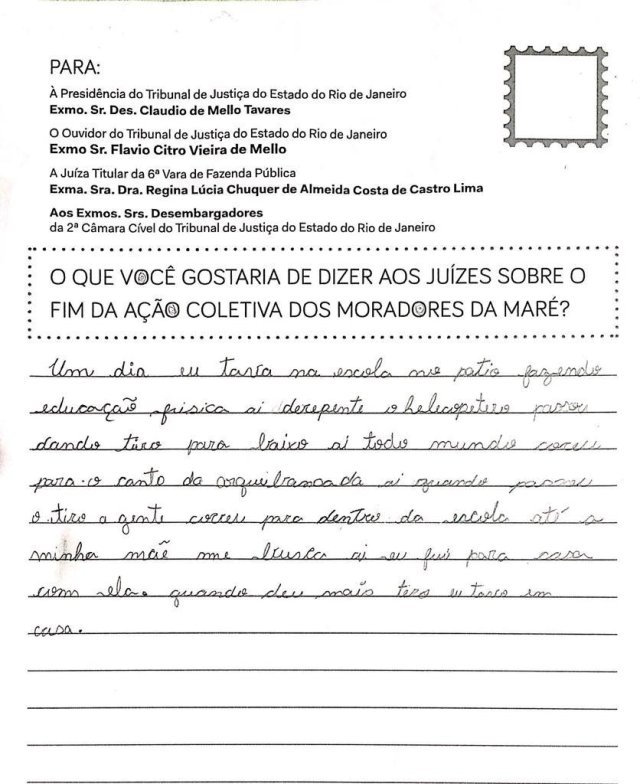 PARA:
À Presidência do Tribunal de Justiça do Estado do Rio de Janeiro
Exmo. Sr. Des. Claudio de Mello Tavares
O Ouvidor do Tribunal de Justiça do Estado do Rio de Janeiro
Exmo Sr. Flavio Citro Vieira de Mello
A Juíza Titular da 6ª Vara de Fazenda Pública
Exma. Sra. Dra. Regina Lúcia Chuquer de Almeida Costa de Castro Lima
Aos Exmos. Srs. Desembargadores
da 2ª Câmara Cível do Tribunal de Justiça do Estado do Rio de Janeiro
O QUE VOCÊ GOSTARIA DE DIZER AOS JUÍZES SOBRE O
FIM DA AÇÃO COLETIVA DOS MORADORES DA MARÉ?
Um dia eu tava na escola no patio fazendo
educação frisica ai derepente o helecopetero passou
dando tiro para baixo ai todo mundo correu
para o canto da arquibrancada ai quando passou
o tiro a gente correu para dentro da escola até a
minha mãe me busca ai eu fui para casa
com ela. quando deu mais tero eu tava em
casa.